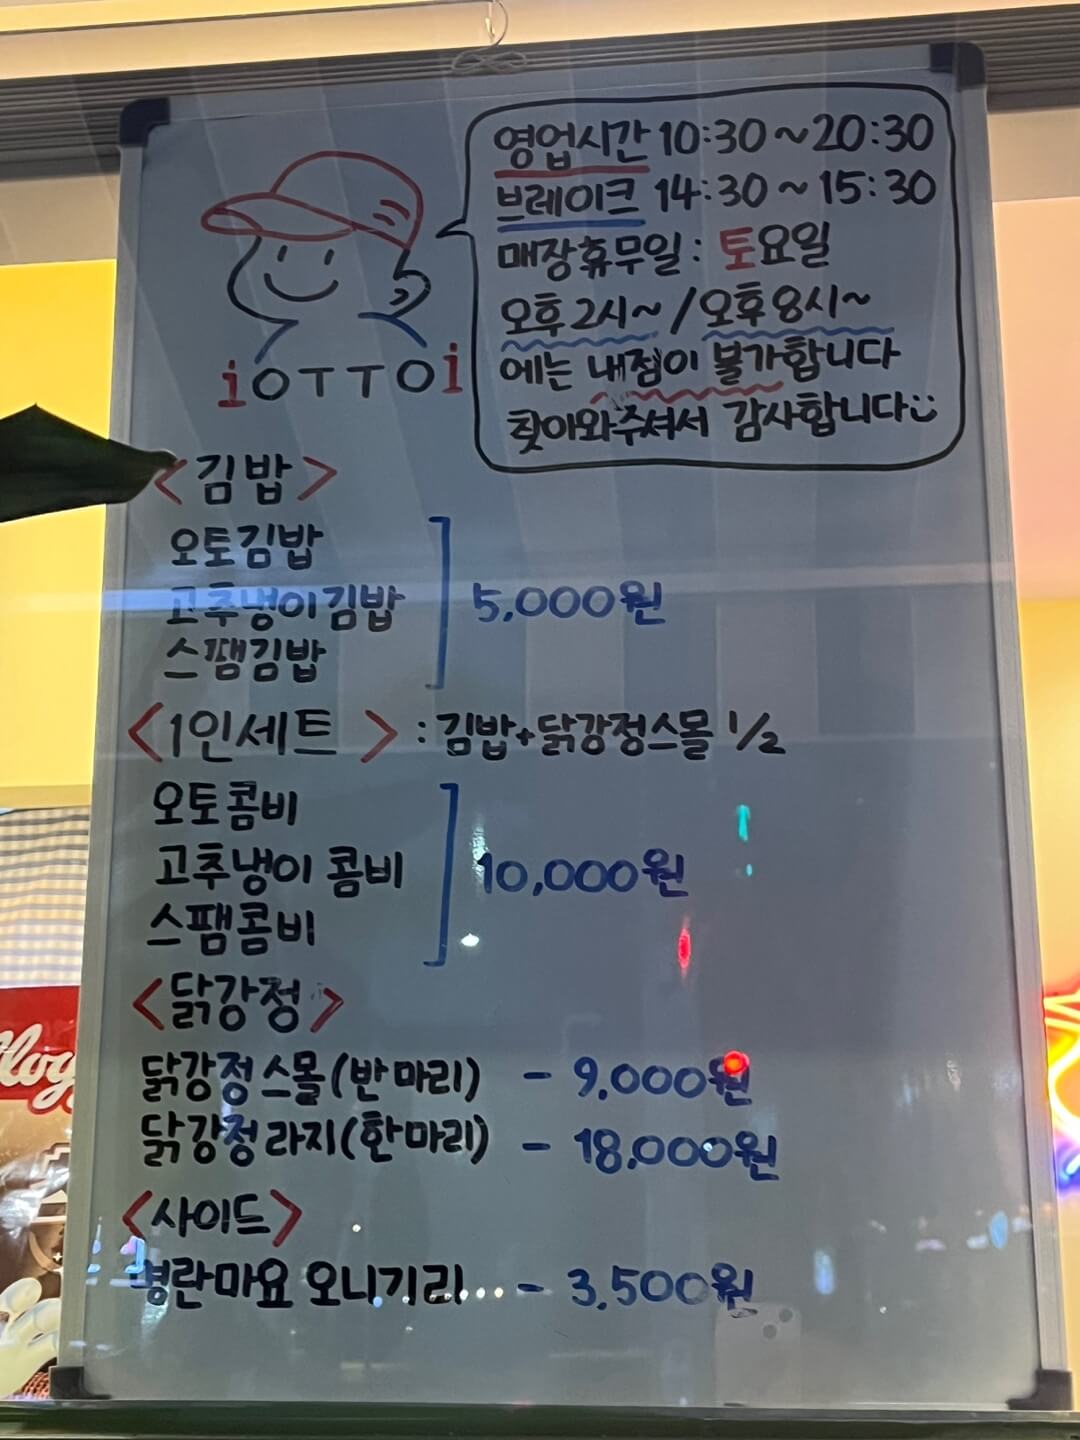 영업시간 10:30~20:30
브레이크 14:30~15:30
매장휴무일: 토요일
오후2시~/오후8시~
에는 내점이 불가합니다
찾아와주셔서 감사합니다
iOTTOi
<김밥>
오토김밥
고추냉이김밥
스팸김밥
5,000원
<1인세트>:김밥+닭강정스몰 1/2
오토콤비
고추냉이 콤비
스팸콤비
10,000원
<닭강정>
닭강정 스몰(반마리) - 9,000원
닭강정 라지(한마리) - 18,000원
<사이드>
명란마요 오니기리 - 3,500원